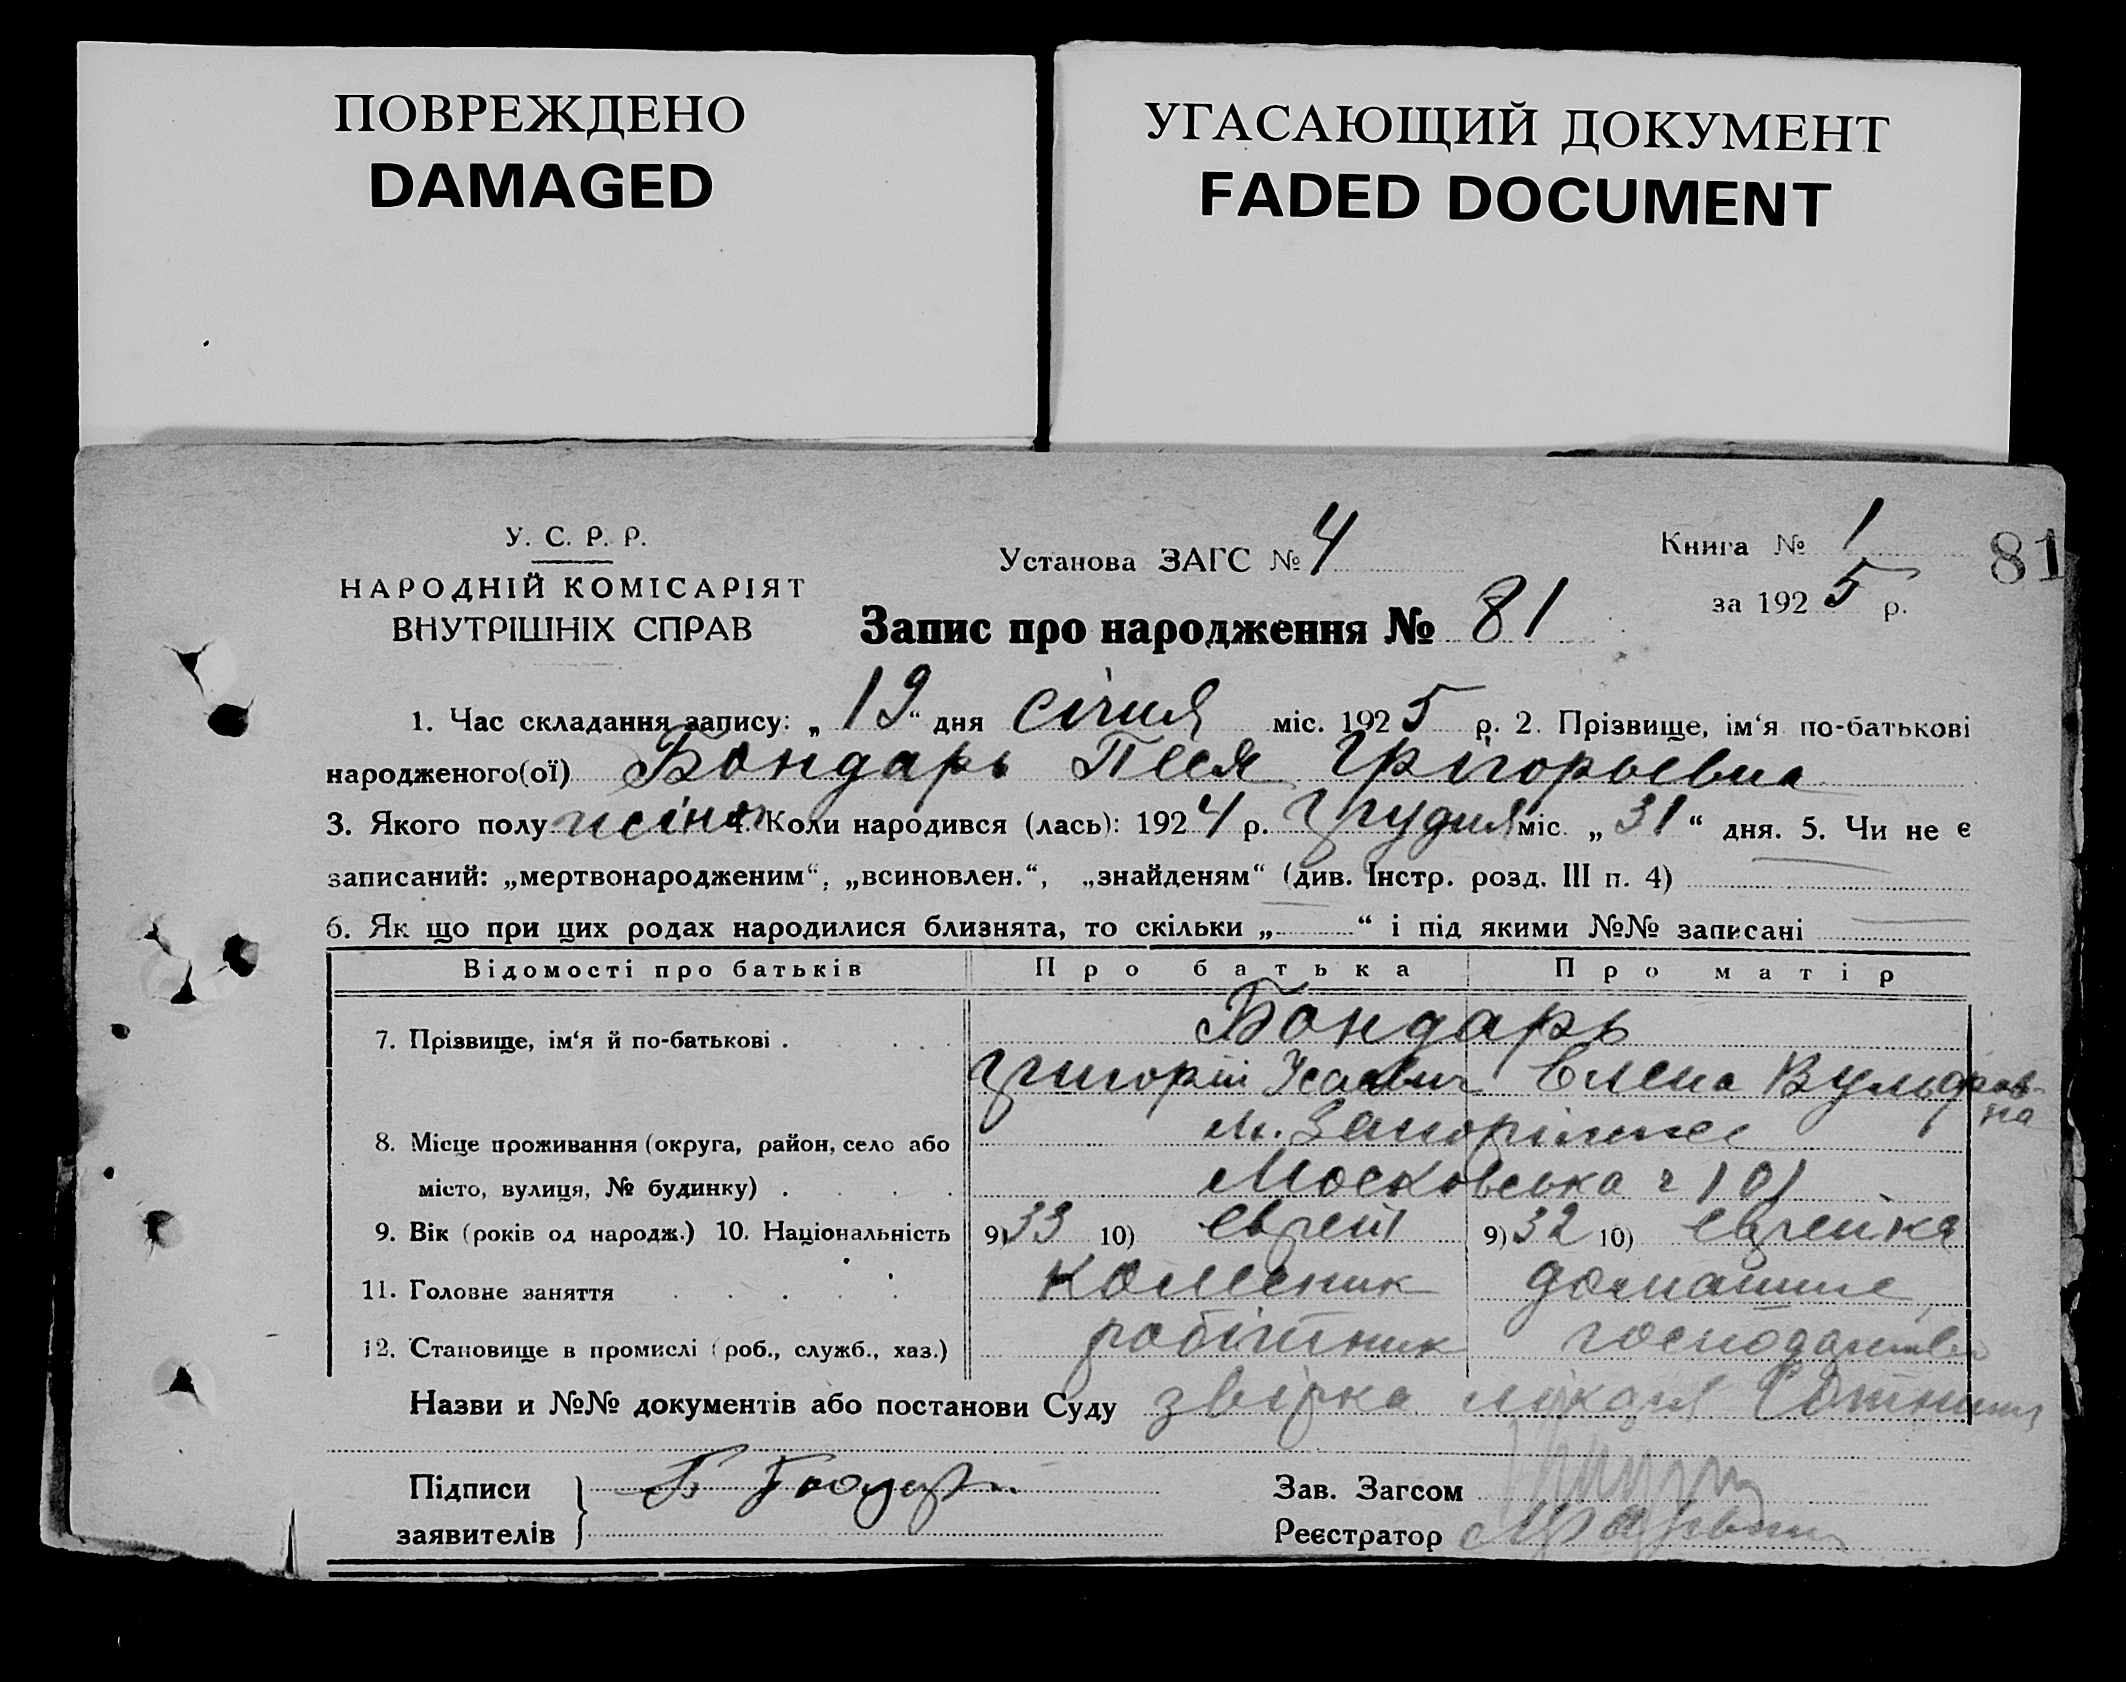 ПОВРЕЖДЕНО
DAMAGED
УГАСАЮЩИЙ ДОКУМЕНТ
FADED DOCUMENT
У. С. Р. Р.
НАРОДНІЙ КОМІСАРІЯТ
ВНУТРІШНІХ СПРАВ
Установа ЗАГС № 4
Книга № 1
81
за 1925 р.
Запис про народження № 81
1. Час складання запису: „19“ дня січня міс. 1925 р. 2. Прізвище, ім‘я по-батькові
народженого(ої) Бондарь Песя Грігорьевна
3. Якого полу жіноч 4. Коли народився (лась): 1924 р. Грудня міс. „31“ дня. 5. Чи не є
записаний: „мертвонародженим“, „всиновлен.“, „знайденям“ (див. Інстр. розд. III п. 4)
6. Як що при цих родах народилися близнята, то скільки „ “ і під якими №№ записані
Відомості про батьків Про батька Про матір
Бондарь
7. Прізвище, ім‘я й по-батькові .
Григорій Исаевич Елена Вульфов-
на
м. Запоріжже
8. Місце проживання (округа, район, село або
місто, вулиця, № будинку) . Московська 101
9. Вік (років од народж.) 10. Національність 9) 33 10) еврей 9) 32 10) еврейка
11. Головне заняття домашнє
12. Становище в промислі (роб., служб., хаз.) робітник господарство
Назви и №№ документів або постанови Суду звірка лікаря
Підписи
заявителів
Зав. Загсом
Реєстратор